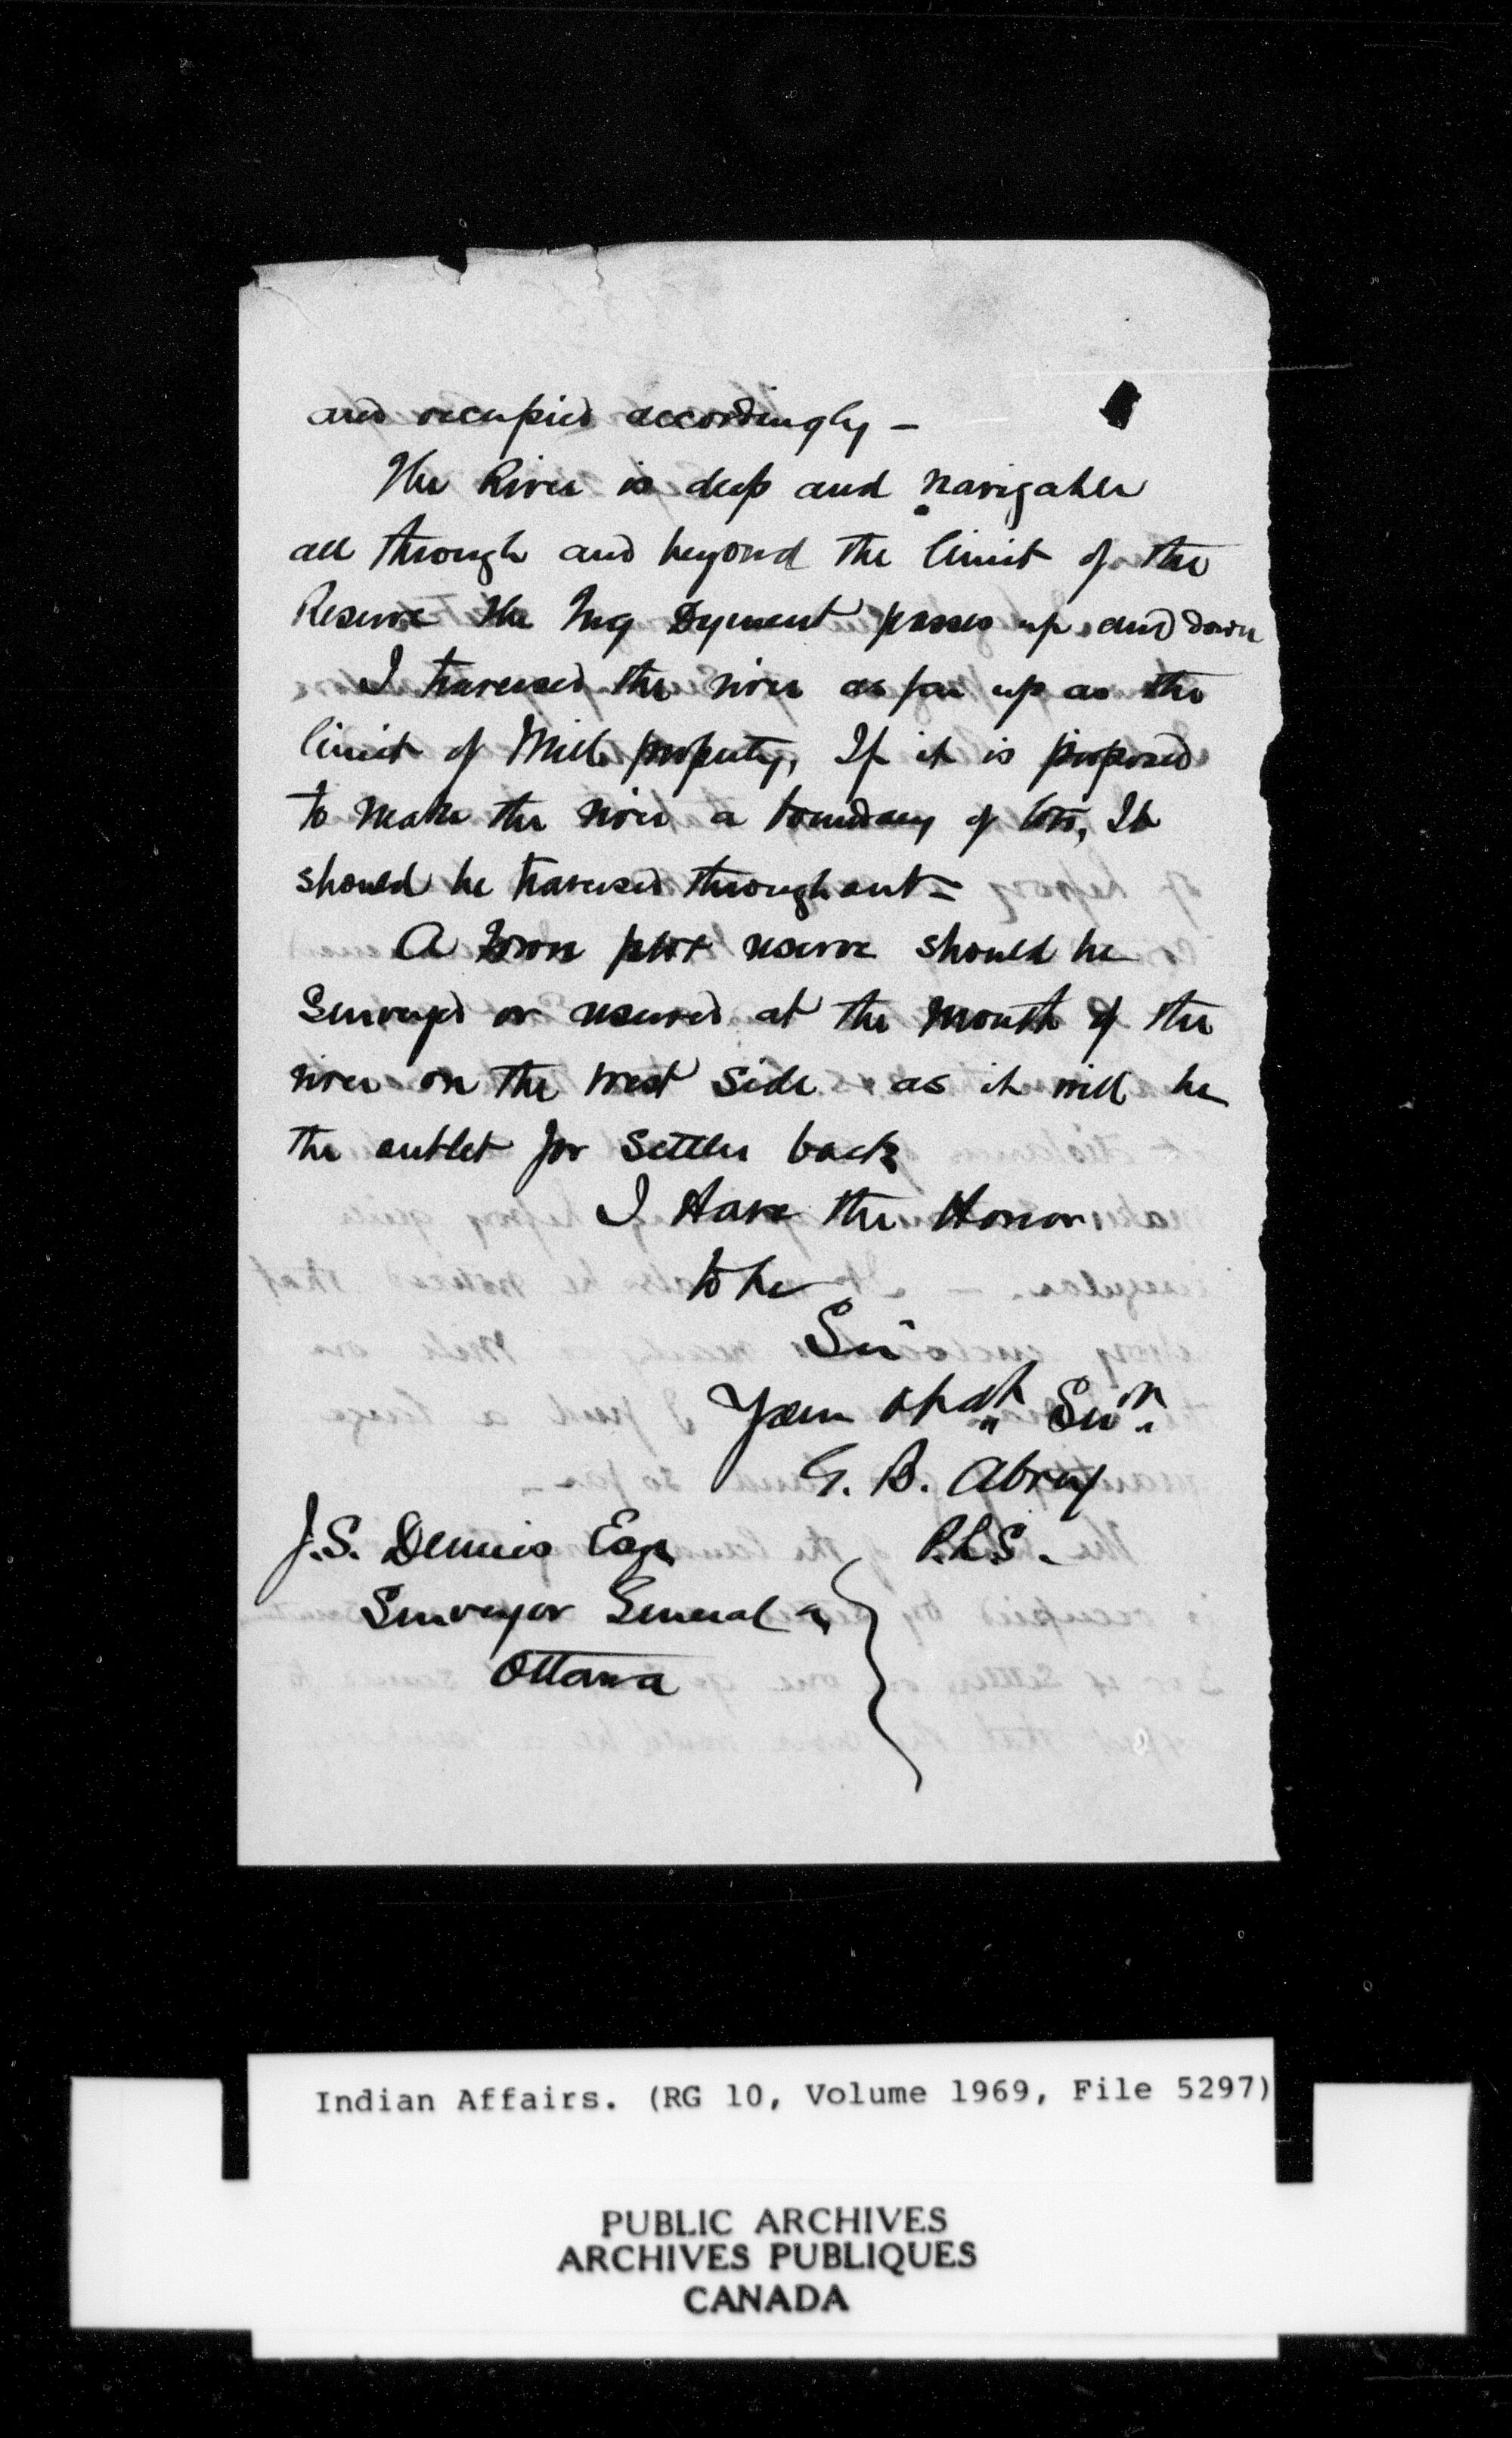 and occupied accordingly –
The River is deep and navigable
all through and beyond the limit of the
Reserve the Tug Dyment passes up and down
I traversed the river as far up as the
limit of Mill property, If it is proposed
to make the river a boundary of lots, It
should be traversed throughout –
A Town plot reserve should be
Surveyed or reserved at the mouth of the
river on the west side as it will be
the outlet for Settlers back
I Have the Honor
to be
Sir
Your obdt Svn
G. B. Abrey
P.L.S.
J.S. Dennis Esq
Surveyor General
Ottawa
Indian Affairs. (RG 10, Volume 1969, File 5297)
PUBLIC ARCHIVES
ARCHIVES PUBLIQUES
CANADA